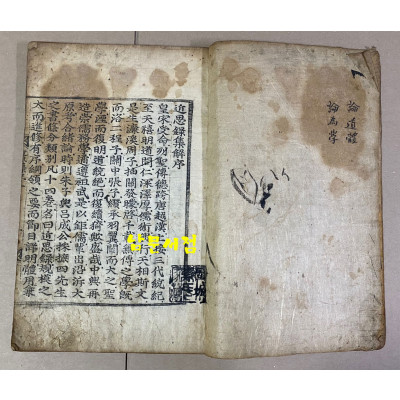 近思錄集解序
皇宋受命列聖傳德跨唐越漢上接三代統紀
至天禧明道間仁深澤厚儒術興行天相斯文
是生濂溪周子抽關發矇啓千載無傳之學既
而洛二程子關中張子纘承羽翼闡而大之聖
學湮而復明道統絕而復續猗歟盛哉中興再
造崇儒務學遹遵祖武是以鉅儒輩出沿泝大
原考合緒論時則朱子與呂成公採摭四先生
之書條分類別凡十四卷名曰近思錄規模之
大而進修有序綱領之要而節目詳明體用兼
論道體
論爲學
남문서점